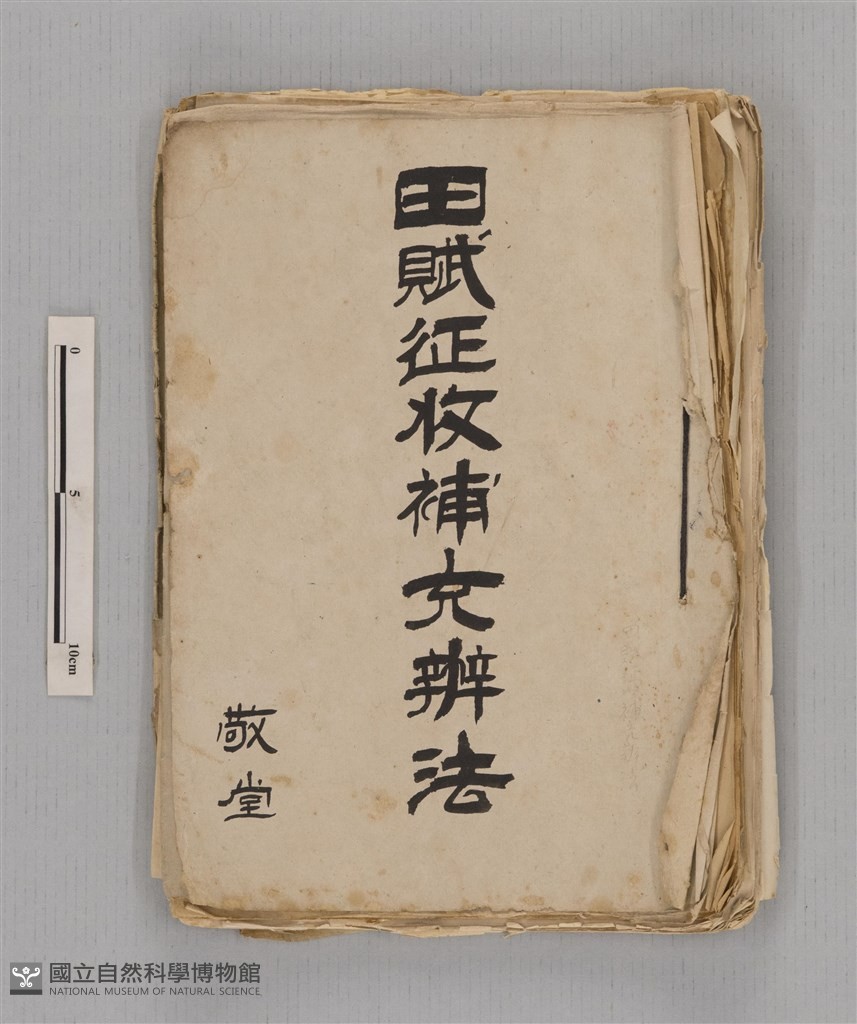 田賦征收補充辦法
敬堂
0
5
10cm
國立自然科學博物館
NATIONAL MUSEUM OF NATURAL SCIENCE